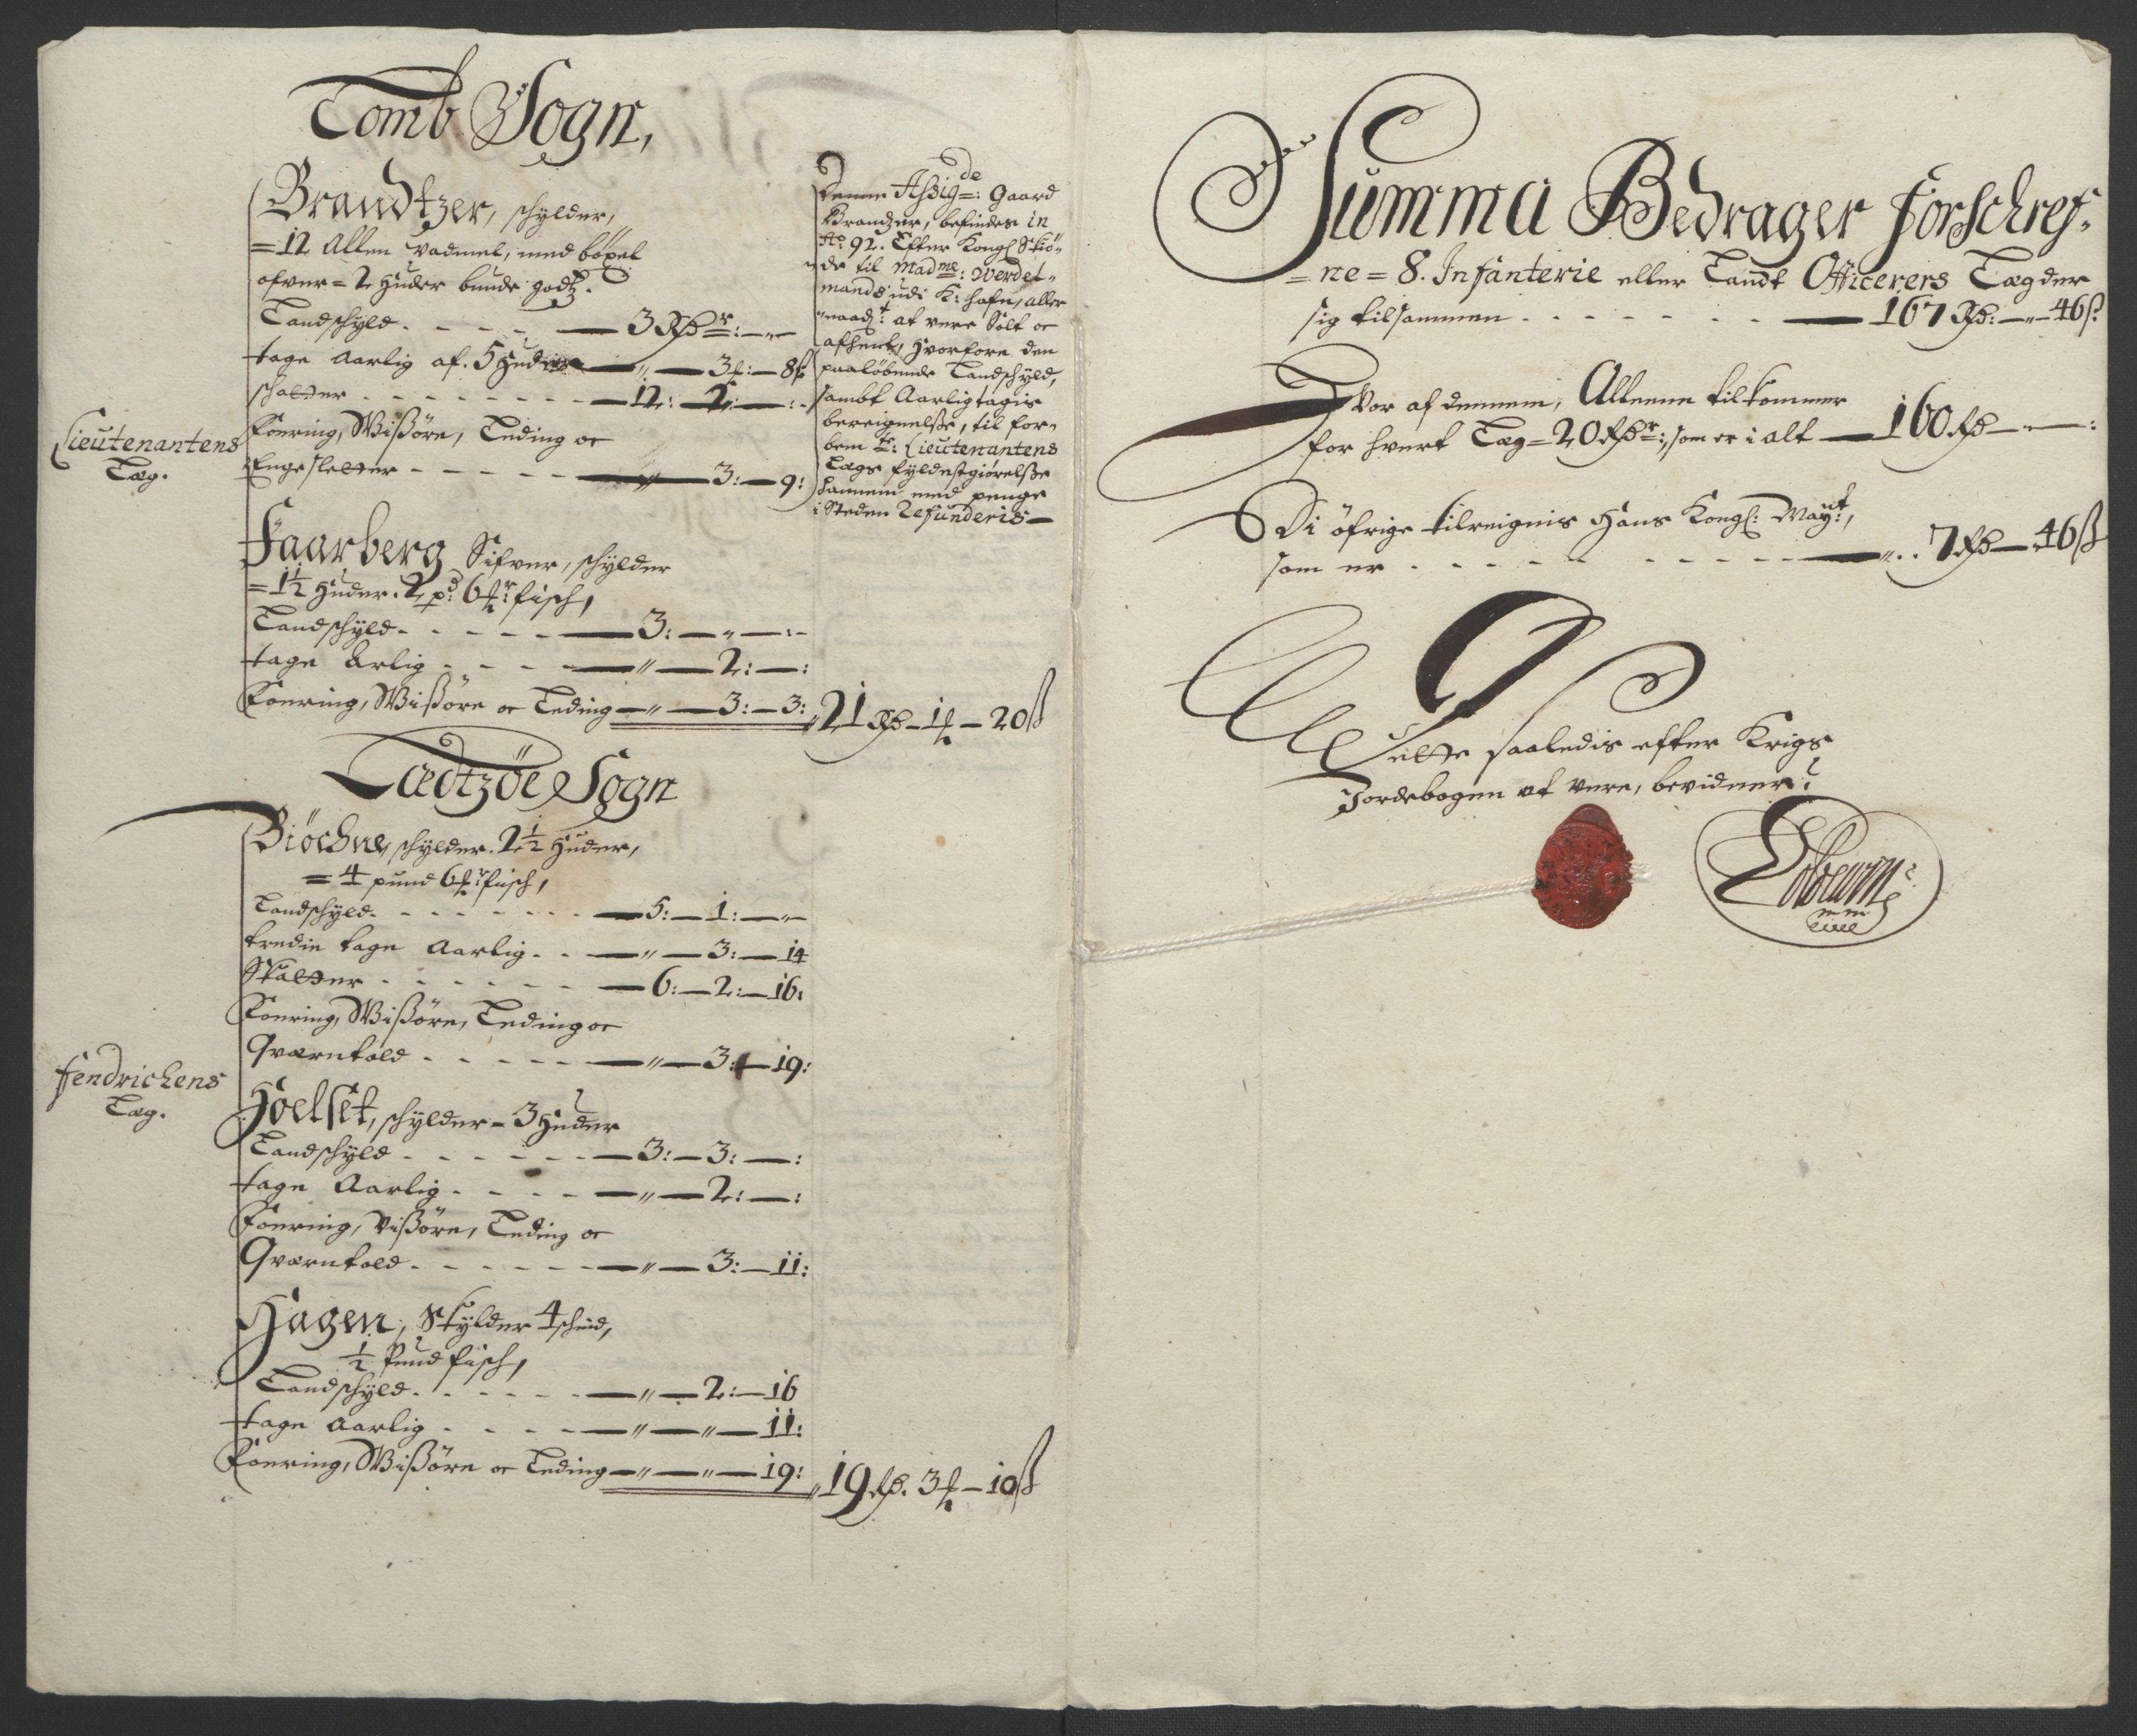 Tomb Sogn,
Brandtzer, schylder,
=12 Allen vadmel, med böxel
ofver = 2 Huder bunde godtz.
Landschyld. - - - - — 3 Rdr: — „ —
tage Aarlig af. 5 Huder — „ — 3 — 8
schatter - - - - - - - — 12: — 2: — : -
Lieutenantens
Læg.
Foering, Wißöre, Leding oc
Engesletter - - - - - — „ — 3: — 9:
Denne Assig=de: Gaard
Brandzer, befindes in
Ao: 92. Efter Kongl Sckiö-
de til Madme: Werdel-
mands udi K: hafn, aller
naadt: at vere Solt oc
afhent, Hvorfore den
paalöbende Landschyld,
sambt Aarligtagis
bereignelße, til for-
bem te: Lieutenantens
Lægs fyldestgiörelße
hannem med penge
i Steden Refunderis —
Faarberg Sifver, schylder
= 1½ Huder. 2 pd: 6 fisch,
Landschyld - - - - - — 3: — „ — : -
tage Arlig - - - - — „ — 2: — :
Foering, Wißöre oc Leding — „ — 3: — 3: 21 Rd — 1 — 20 ß
Lædtzöe Sogn
Biöchne, schylder. 2½ Huder,
= 4 pund 6 fisch,
Landschyld. - - - - - - — 5: — 1: — „ —
tredie tage Aarlig. - - — „ — 3: — 14
Skatter - - - - - - — 6: — 2: — 16:
Foering, Wißöre, Leding oc
Qværntold - - - - - — „ — 3: — 19:
Fendrichens
Læg.
Hoelset, schylder = 3 Huder
Landschyld - - - - - - — 3: — 3: — :
tage Aarlig - - - - — „ — 2: — :
Foering, Vißöre, Leding oc
Qværntold - - - - - - — „ — 3: — 11:
Hagen, Skylder 4 schind,
½ Pund fisch,
Landschyld. - - - - - — „ — 2: — 16
tage Aarlig - - - - — „ — „ — 11:
Foering, Wißöre oc Leding — „ — „ — 19: 19 Rd. 3 — 10 ß
Summa Bedrager forschref-
= ne = 8. Infanterie eller Landt Officerers Lægder
sig tilsammen - - - - - - - — 167 Rd: — „ — 46 ß
Hvor af dennem, Alleene tilkommer
for hvert Læg = 20 Rdr:, som er i alt — 160 Rd — „ — :
Di öfrige tilreignis Hans Kongl: Mayt:,
som er - - - - - - - - - — „ . 7 Rd — 46 ß
Dette saaledis efter Krigs
Jordebogen at vere, bevidner